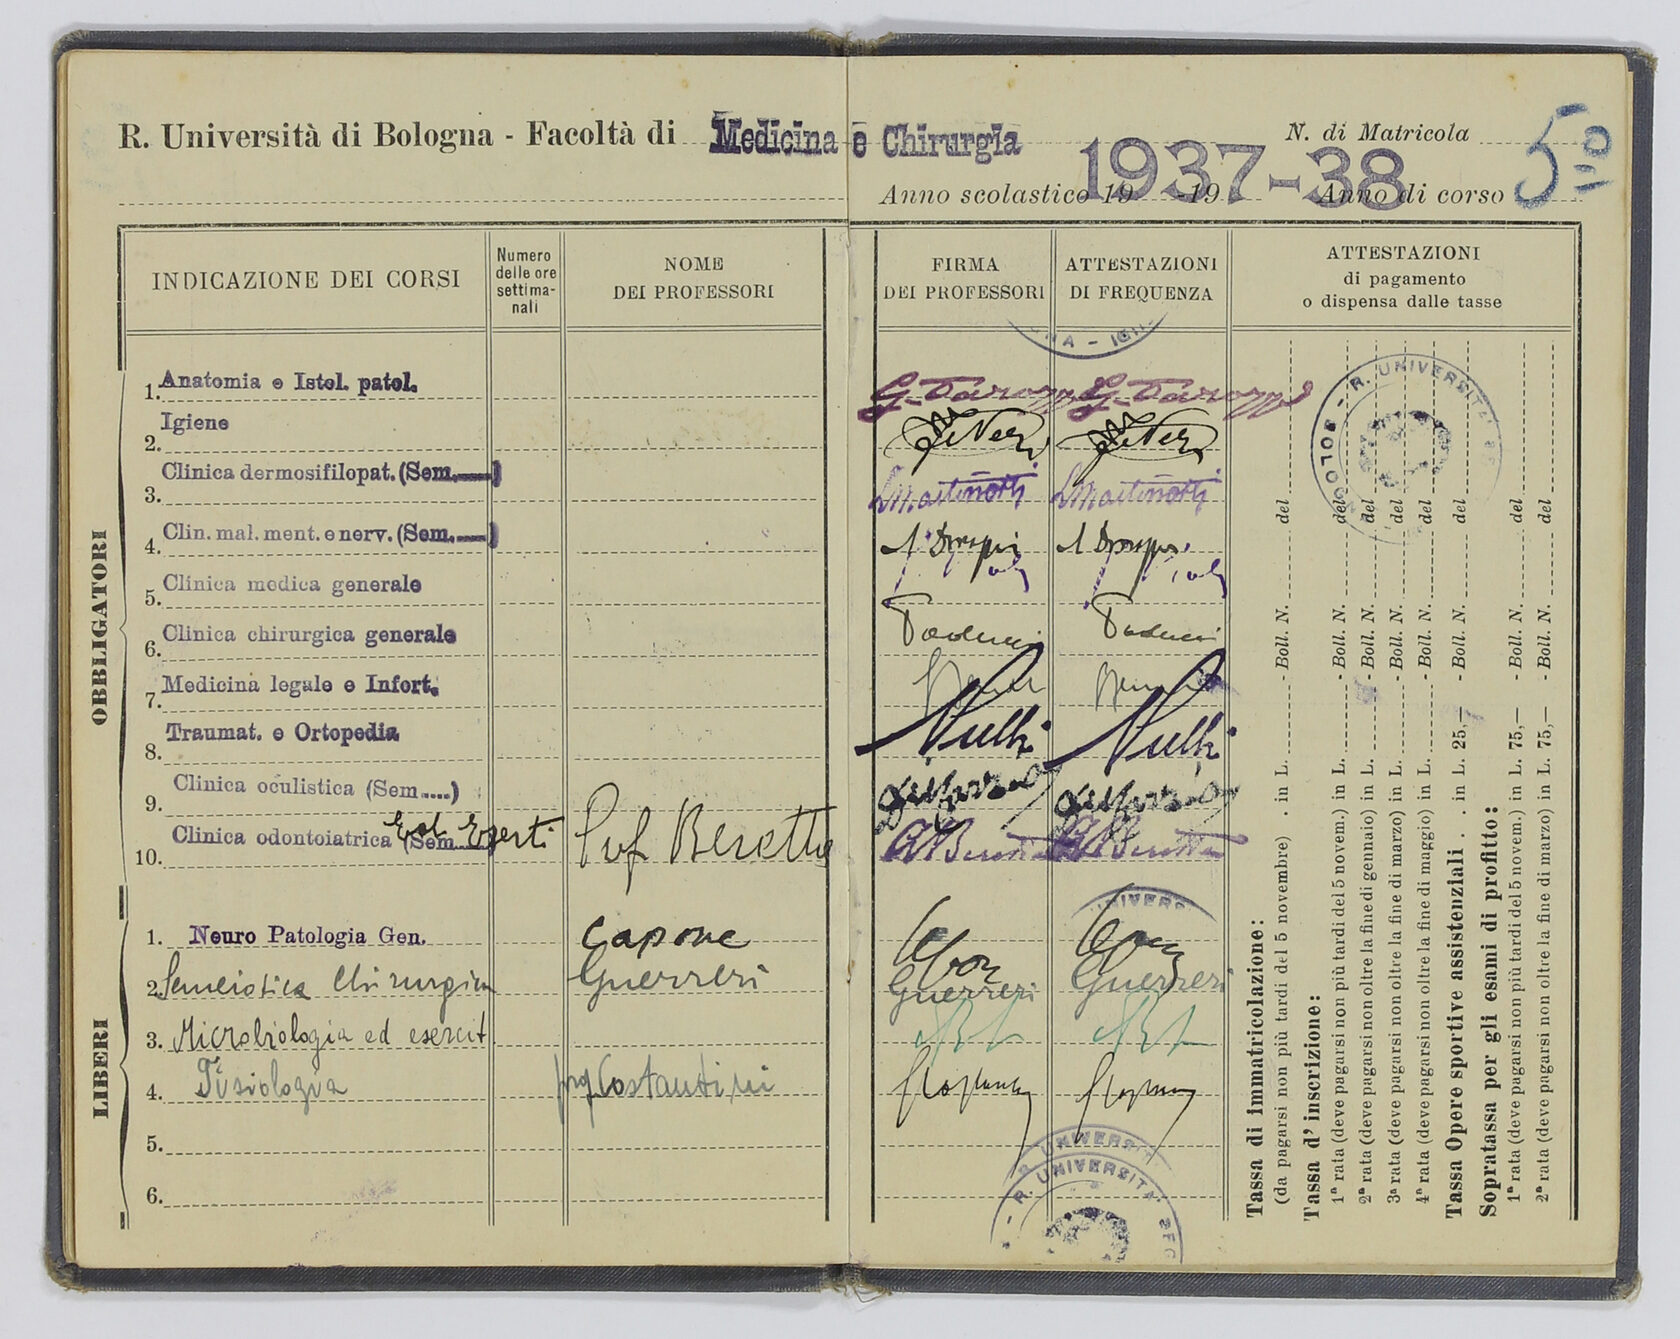 R. Università di Bologna - Facoltà di Medicina e Chirurgia
N. di Matricola
Anno scolastico 19 -19
1937-38
Anno di corso 5º
INDICAZIONE DEI CORSI
Numero
delle ore
settima-
nali
NOME
DEI PROFESSORI
FIRMA
DEI PROFESSORI
ATTESTAZIONI
DI FREQUENZA
ATTESTAZIONI
di pagamento
o dispensa dalle tasse
OBBLIGATORI
1. Anatomia e Istol. patol.
G. Tarozzi G. Tarozzi
2. Igiene
3. Clinica dermosifilopat. (Sem.....)
L Martinotti L Martinotti
4. Clin. mal. ment. e nerv. (Sem.....)
5. Clinica medica generale
6. Clinica chirurgica generale
7. Medicina legale e Infort.
8. Traumat. e Ortopedia
9. Clinica oculistica (Sem.....)
10. Clinica odontoiatrica (Sem.....
Prof Beretta
A Beretta A Beretta
LIBERI
1. Neuro Patologia Gen.
Capone
2. Semeiotica Chirurgica
Guerreri
Guerreri Guerreri
3. Microbiologia ed esercit
4. Tisiologia
prof Costantini
5.
6.
Tassa di immatricolazione:
(da pagarsi non più tardi del 5 novembre) . in L. - Boll. N. del
Tassa d'inscrizione:
1ª rata (deve pagarsi non più tardi del 5 novem.) in L. - Boll. N. del
2ª rata (deve pagarsi non oltre la fine di gennaio) in L. - Boll. N. del
3ª rata (deve pagarsi non oltre la fine di marzo) in L. - Boll. N. del
4ª rata (deve pagarsi non oltre la fine di maggio) in L. - Boll. N. del
Tassa Opere sportive assistenziali . . in L. 25,— - Boll. N. del
Sopratassa per gli esami di profitto:
1ª rata (deve pagarsi non più tardi del 5 novem.) in L. 75,— - Boll. N. del
2ª rata (deve pagarsi non oltre la fine di marzo) in L. 75,— - Boll. N. del
BOLOGNA - R. UNIVERSITA'
UNIVERS
UNIVERSIT
- R. UNIVERSITA'